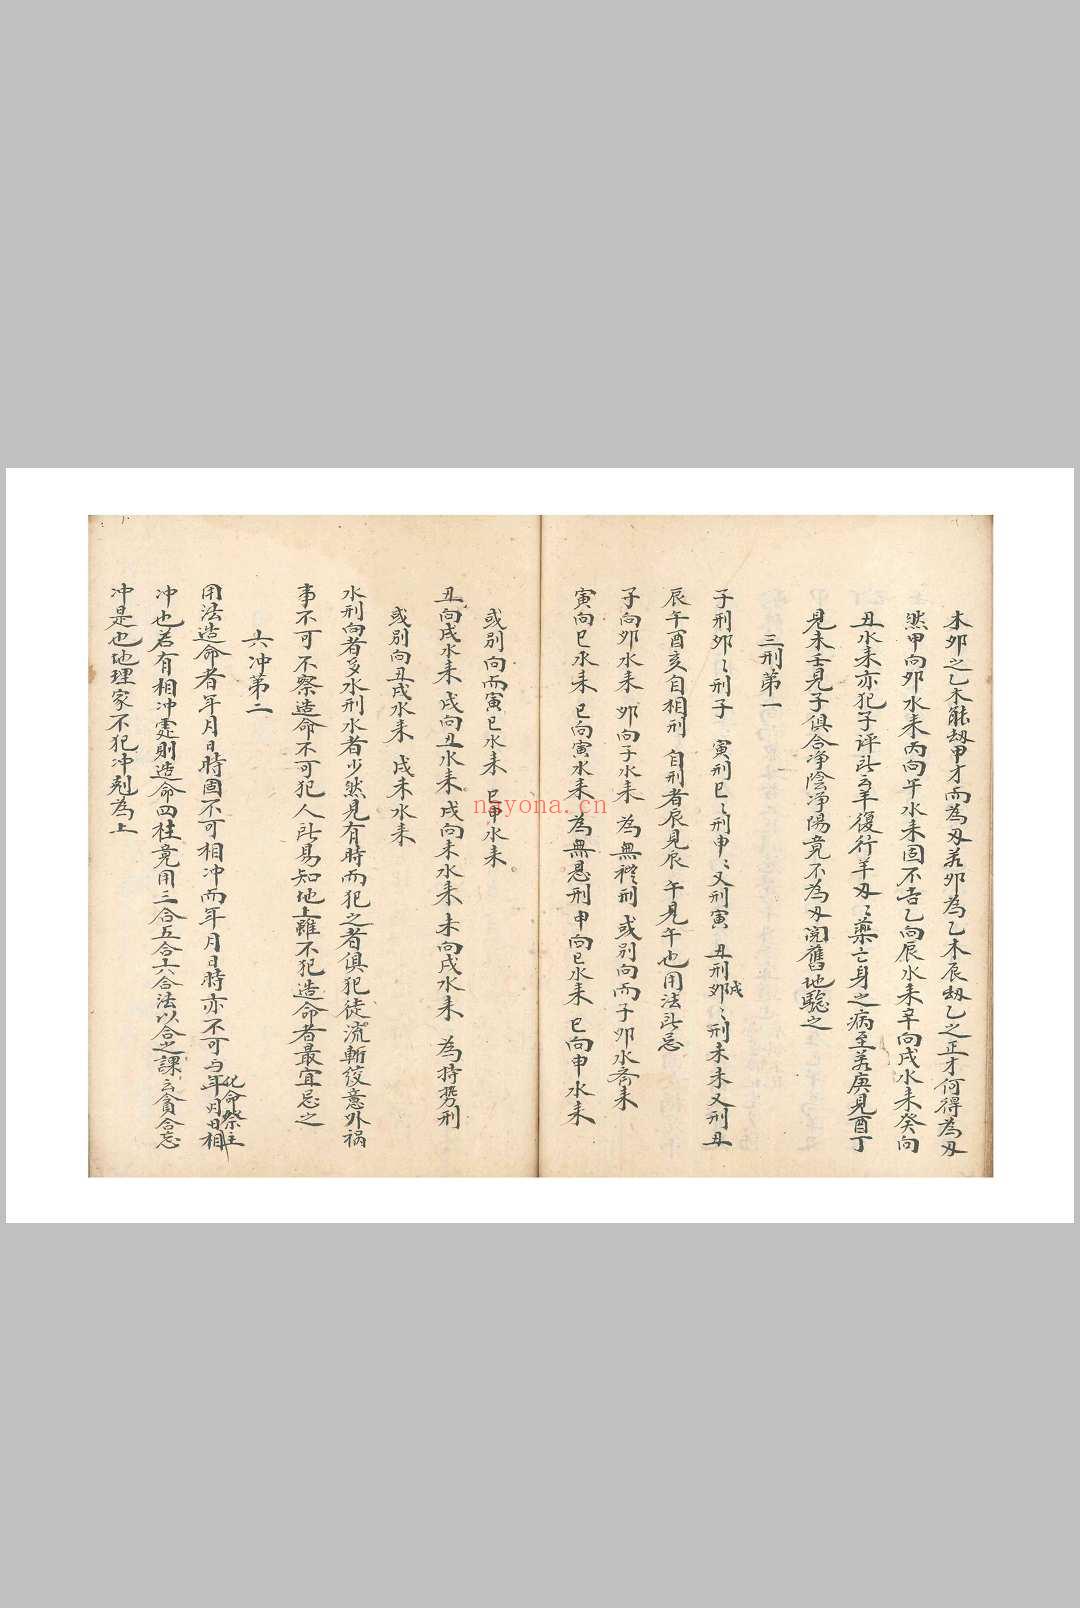 木卯之乙木能劫甲才而為刄若卯為乙木辰劫乙之正才何得為刄
然甲向卯水来丙向午水来固不吉乙向辰水来辛向戌水来癸向
丑水来亦犯子评此云羊復行羊刄〻藥亡身之病至若庚見酉丁
見未壬見子俱合净陰净陽竟不為刄閲舊地驗之
三刑第一
子刑卯〻刑子 寅刑巳〻刑申〻又刑寅 丑刑戌〻刑未未又刑丑
辰午酉亥自相刑 自刑者辰見辰 午見午也用法此忌
子向卯水来 卯向子水来 為無禮刑 或别向而子卯水斉来
寅向巳水来 巳向寅水来 為無恩刑 申向巳水来 巳向申水来
或别向而寅巳水来 巳申水来
丑向戌水来 戌向丑水来 戌向未水来 未向戌水来 為持勢刑
或别向丑戌水来 戌未水来
水刑向者多水刑水者少然見有時而犯之者俱犯徒流斬絞意外禍
事不可不察造命不可犯人所易知地上雖不犯造命者最宜忌之
六冲第二
用法造命者年月日時固不可相冲而年月日時亦不可与化命祭主年月日相
冲也若有相冲處則造命四柱竟用三合五合六合法以合之課云貪合忘
冲是也地理家不犯冲剋為上
nayona.cn